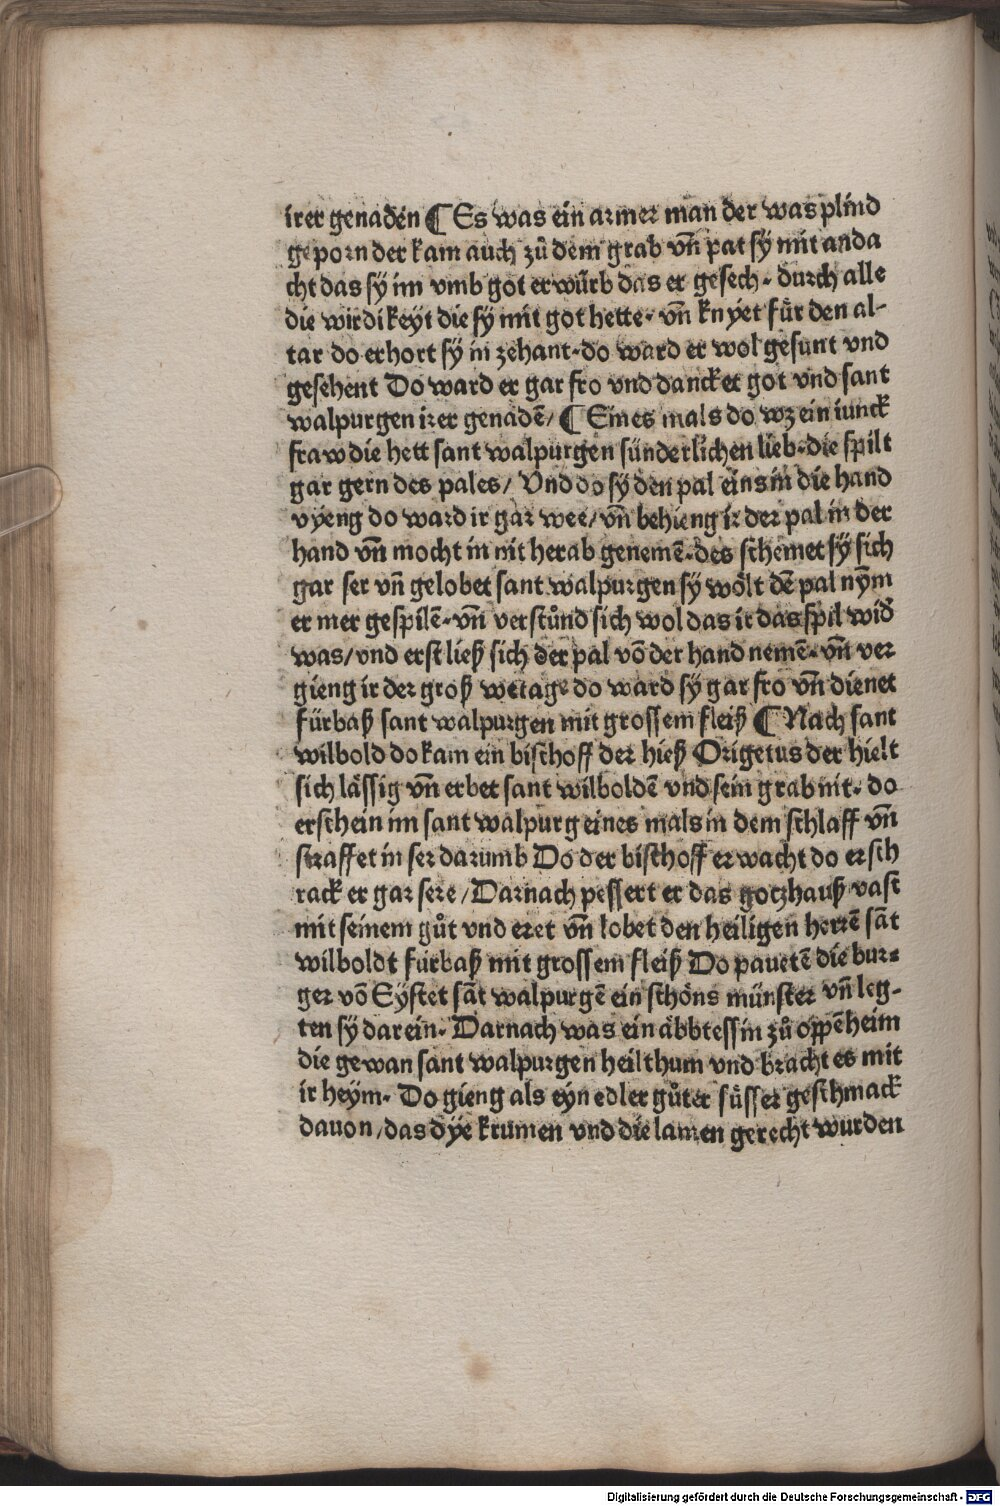 irer genaden ¶ Es was ein armer man der was plind
geporn der kam auch zů dem grab vn̄ pat sÿ mit anda
cht das sÿ im vmb got erwürb das er gesech. durch alle
die wirdikeyt die sÿ mit got hette. vn̄ knyet für den al-
tar do erhort sÿ in zehant. do ward er wol gesunt vnd
gesehent Do ward er gar fro vnd dancket got vnd sant
walpurgen irer genadē/ ¶ Eines mals do wz ein iunck
fraw die hett sant walpurgen sünderlichen lieb. die spilt
gar gern des pales/ Vnd do sÿ den pal eins in die hand
vyeng do ward ir gar wee/ vn̄ behieng ir der pal in der
hand vn̄ mocht in nit herab genemē. des schemet sÿ sich
gar ser vn̄ gelobet sant walpurgen sÿ wölt dē pal nȳm
er mer gespilē. vn̄ verstůnd sich wol das ir das spil wid̕
was/ vnd erst ließ sich der pal vō der hand nemē. vn̄ ver
gieng ir der groß wetage do ward sÿ gar fro vn̄ dienet
fürbaß sant walpurgen mit grossem fleiß ¶ Nach sant
wilbold do kam ein bischoff der hieß Origetus der hielt
sich lässig vn̄ erbet sant wilboldē vnd sein grab nit. do
erschein im sant walpurg eines mals in dem schlaff vn̄
straffet in ser darumb Do der bischoff erwacht do ersch
rack er gar sere/ Darnach pessert er das gotzhauß vast
mit seinem gůt vnd eret vn̄ lobet den heiligen herrē sāt
wilboldt fürbaß mit grossem fleiß Do pauetē die bur-
ger vō Eystet sāt walpurgē ein schöns münster vn̄ leg-
ten sÿ darein. Darnach was ein äbbtessin zů oppēheim
die gewan sant walpurgen heilthum vnd bracht es mit
ir heym. Do gieng als eyn edler gůter süsser geschmack
dauon/ das dÿe krumen vnd die lamen gerecht wurden
Digitalisierung gefördert durch die Deutsche Forschungsgemeinschaft - DFG